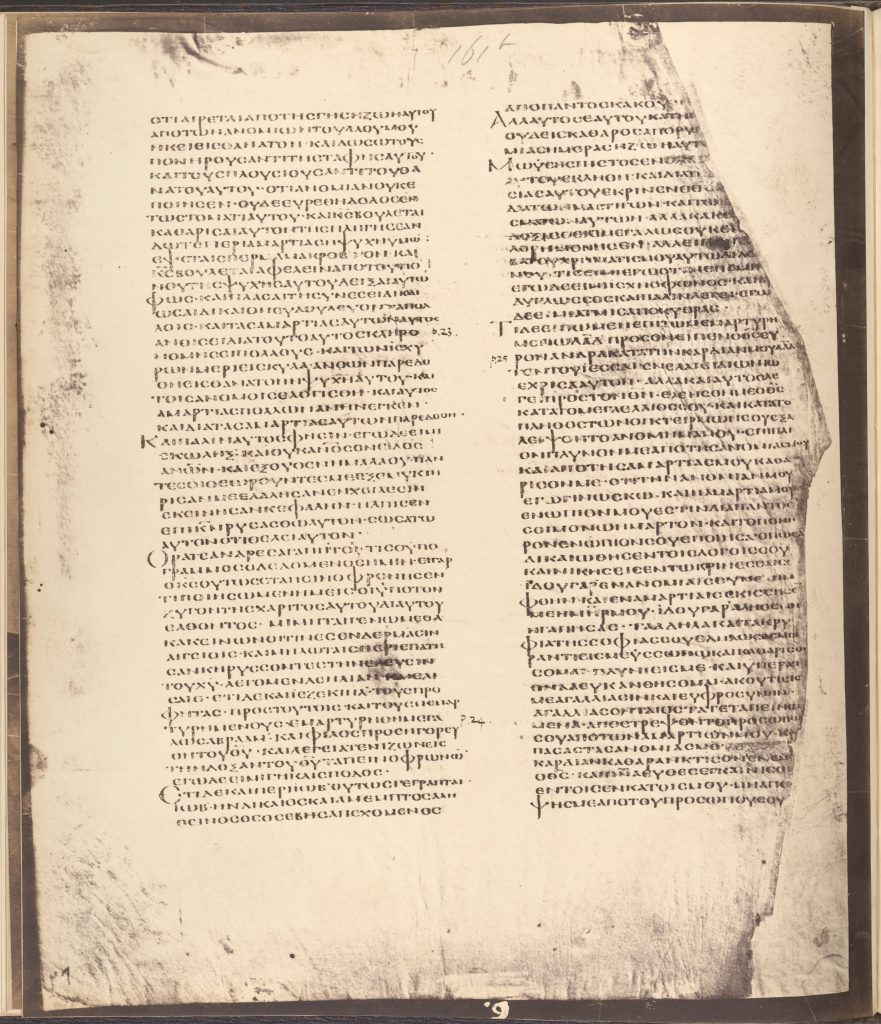 161 b
ΟΤΙΑΙΡΕΤΑΙΑΠΟΤΗϹΓΗϹΗΖΩΗΑΥΤΟΥ
ΑΠΟΤΩΝΑΝΟΜΙΩΝΤΟΥΛΑΟΥΜΟΥ
ΗΚΕΙΕΙϹΘΑΝΑΤΟΝ· ΚΑΙΔΩϹΩΤΟΥϹ
ΠΟΝΗΡΟΥϹΑΝΤΙΤΗϹΤΑΦΗϹΑΥΤΟΥ·
ΚΑΙΤΟΥϹΠΛΟΥϹΙΟΥϹΑΝΤΙΤΟΥΘΑ
ΝΑΤΟΥΑΥΤΟΥ· ΟΤΙΑΝΟΜΙΑΝΟΥΚΕ
ΠΟΙΗϹΕΝ· ΟΥΔΕΕΥΡΕΘΗΔΟΛΟϹΕΝ
ΤΩϹΤΟΜΑΤΙΑΥΤΟΥ· ΚΑΙΚϹΒΟΥΛΕΤΑΙ
ΚΑΘΑΡΙϹΑΙΑΥΤΟΝΤΗϹΠΛΗΓΗϹΕΑΝ
ΔΩΤΕΠΕΡΙΑΜΑΡΤΙΑϹΗΨΥΧΗΥΜΩ
ΟΨΕΤΑΙϹΠΕΡΜΑΜΑΚΡΟΒΙΟΝ· ΚΑΙ
ΚϹΒΟΥΛΕΤΑΙΑΦΕΛΕΙΝΑΠΟΤΟΥΠΟ
ΝΟΥΤΗϹΨΥΧΗϹΑΥΤΟΥΔΕΙΞΑΙΑΥΤΩ
ΦΩϹ· ΚΑΙΠΛΑϹΑΙΤΗϹΥΝΕϹΕΙΔΙΚΑΙ
ΩϹΑΙΔΙΚΑΙΟΝΕΥΔΟΥΛΕΥΟΝΤΑΠΟΛ
ΛΟΙϹ· ΚΑΙΤΑϹΑΜΑΡΤΙΑϹΑΥΤΩΝΑΥΤΟϹ
ΑΝΟΙϹΕΙΔΙΑΤΟΥΤΟΑΥΤΟϹΚΛΗΡΟ
p.23
ΝΟΜΗϹΕΙΠΟΛΛΟΥϹ· ΚΑΙΤΩΝΙϹΧΥ
ΡΩΝΜΕΡΙΕΙϹΚΥΛΑΑΝΘΩΝΠΑΡΕΔΟ
ΘΗΕΙϹΘΑΝΑΤΟΝΗΨΥΧΗΑΥΤΟΥ· ΚΑΙ
ΤΟΙϹΑΝΟΜΟΙϹΕΛΟΓΙϹΘΗ· ΚΑΙΑΥΤΟϹ
ΑΜΑΡΤΙΑϹΠΟΛΛΩΝΑΝΗΝΕΓΚΕΝ·
ΚΑΙΔΙΑΤΑϹΑΜΑΡΤΙΑϹΑΥΤΩΝΠΑΡΕΔΟΘΗ·
ΚΑΙΠΑΛΙΝΑΥΤΟϹΦΗϹΙΝ· ΕΓΩΔΕΕΙΜΙ
ϹΚΩΛΗΞ· ΚΑΙΟΥΚΑΝΟϹΟΝΕΙΔΟϹ
ΑΝΩΝ· ΚΑΙΕΞΟΥΘΕΝΗΜΑΛΑΟΥ· ΠΑΝ
ΤΕϹΟΙΘΕΩΡΟΥΝΤΕϹΜΕΕΞΕΜΥΚΤΗ
ΡΙϹΑΝΜΕΕΛΑΛΗϹΑΝΕΝΧΕΙΛΕϹΙΝ
ΕΚΕΙΝΗϹΑΝΚΕΦΑΛΗΝ· ΗΛΠΙϹΕΝ
ΕΠΙΚΝΡΥϹΑϹΘΩΑΥΤΟΝ· ϹΩϹΑΤΩ
ΑΥΤΟΝΟΤΙΘΕΛΕΙΑΥΤΟΝ·
ΟΡΑΤΕΑΝΔΡΕϹΑΓΑΠΗΤΟΙ· ΤΙϹΟΥΠΟ
ΓΡΑΜΜΟϹΟΔΕΔΟΜΕΝΟϹΗΜΙΝΕΙΓΑΡ
ΟΚϹΟΥΤΩϹΕΤΑΠΕΙΝΟΦΡΟΝΗϹΕΝ
ΤΙΠΟΙΗϹΩΜΕΝΗΜΕΙϹΟΙΥΠΟΤΟΝ
ΖΥΓΟΝΤΗϹΧΑΡΙΤΟϹΑΥΤΟΥΔΙΑΥΤΟΥ
ΕΛΘΟΝΤΟϹ· ΜΙΜΗΤΑΙΓΕΝΩΜΕΘΑ
ΚΑΚΕΙΝΩΝΟΙΤΙΝΕϹΕΝΔΕΡΜΑϹΙΝ
ΑΙΓΙΟΙϹ· ΚΑΙΜΗΛΩΤΑΙϹΠΕΡΙΕΠΑΤΗ
ϹΑΝΚΗΡΥϹϹΟΝΤΕϹΤΗΝΕΛΕΥϹΙΝ
ΤΟΥΧΥ· ΛΕΓΟΜΕΝΔΕΗΛΙΑΝ· ΚΑΙΕΛΙ
ϹΑΙΕ· ΕΤΙΔΕΚΑΙΙΕΖΕΚΙΗΛ· ΤΟΥϹΠΡΟ
ΦΗΤΑϹ· ΠΡΟϹΤΟΥΤΟΙϹ· ΚΑΙΤΟΥϹΜΕΜΑΡ
ΤΥΡΗΜΕΝΟΥϹ· ΕΜΑΡΤΥΡΗΘΗΜΕΓΑ
p.24
ΛΩϹΑΒΡΑΑΜ· ΚΑΙΦΙΛΟϹΠΡΟϹΗΓΟΡΕΥ
ΘΗΤΟΥΘΥ· ΚΑΙΛΕΓΕΙΑΤΕΝΙΖΩΝΕΙϹ
ΤΗΝΔΟΞΑΝΤΟΥΘΥΤΑΠΕΙΝΟΦΡΩΝΩ
ΕΓΩΔΕΕΙΜΙΓΗΚΑΙϹΠΟΔΟϹ·
ΕΤΙΔΕΚΑΙΠΕΡΙΙΩΒ· ΟΥΤΩϹΓΕΓΡΑΠΤΑΙ
ΙΩΒ· ΗΝΔΙΚΑΙΟϹΚΑΙΑΜΕΜΠΤΟϹΑΛΗ
ΘΙΝΟϹΘΕΟϹΕΒΗϹΑΠΕΧΟΜΕΝΟϹ
ΑΠΟΠΑΝΤΟϹΚΑΚΟΥ·
ΑΛΛΑΥΤΟϹΕΑΥΤΟΥΚΑΤΗ
ΟΥΔΕΙϹΚΑΘΑΡΟϹΑΠΟΡΥ
ΜΙΑϹΗΜΕΡΑϹΗΖΩΗΑΥΤ
ΜΩΥϹΗϹΠΙϹΤΟϹΕΝΟ
ΑΥΤΟΥΕΚΛΗΘΗ· ΚΑΙΔΙΑ
ϹΙΑϹΑΥΤΟΥΕΚΡΙΝΕΝΟΘ
ΜΑΤΩΝΑΥΤΩΝ· ΑΛΛΑΚΑΚΕ
ΔΟΞΑϹΘΕΙϹΜΕΓΑΛΩϹΟΥΚΕ
ΝΟΥ· ΤΙϹΕΙΜΙΕΓΩΟΤΙΜΕΠΕΜΠ
ΕΓΩΔΕΕΙΜΙΙϹΧΝΟΦΩΝΟϹ· ΚΑΙ
ΔΕΕΙΜΙΑΤΜΙϹΑΠΟΚΥΘΡΑϹ·
ΤΙΔΕΕΙΠΩΜΕΝΕΠΙΤΩΜΕΜΑΡΤΥΡΗ
ΜΕΝΩΔΑΔ· ΠΡΟϹΟΝΕΙΠΕΝΟΘϹΕΥ
p.25
ΡΟΝΑΝΔΡΑΚΑΤΑΤΗΝΚΑΡΔΙΑΝΜΟΥΔΑΔ
ΤΟΝΤΟΥΙΕϹϹΑΙ· ΕΝΕΛΕΕΙΑΙΩΝΙΩ
ΕΧΡΙϹΑΑΥΤΟΝ· ΑΛΛΑΚΑΙΑΥΤΟϹΛΕ
ΓΕΙΠΡΟϹΤΟΝΘΝ· ΕΛΕΗϹΟΝΜΕΟΘϹ
ΚΑΤΑΤΟΜΕΓΑΕΛΕΟϹϹΟΥ· ΚΑΙΚΑΤΑΤΟ
ΠΛΗΘΟϹΤΩΝΟΙΚΤΕΙΡΜΩΝϹΟΥΕΞΑ
ΛΕΙΨΟΝΤΟΑΝΟΜΗΜΑΜΟΥ· ΕΠΙΠΛΙ
ΟΝΠΛΥΝΟΝΜΕΑΠΟΤΗϹΑΝΟΜΙΑϹΜΟΥ
ΚΑΙΑΠΟΤΗϹΑΜΑΡΤΙΑϹΜΟΥΚΑΘΑ
ΡΙϹΟΝΜΕ· ΟΤΙΤΗΝΑΝΟΜΙΑΝΜΟΥ
ΕΓΩΓΙΝΩϹΚΩ· ΚΑΙΗΑΜΑΡΤΙΑΜΟΥ
ΕΝΩΠΙΟΝΜΟΥΕϹΤΙΝΔΙΑΠΑΝΤΟϹ
ϹΟΙΜΟΝΩΗΜΑΡΤΟΝ· ΚΑΙΤΟΠΟΝΗ
ΡΟΝΕΝΩΠΙΟΝϹΟΥΕΠΟΙΗϹΑΟΠΩϹ
ΔΙΚΑΙΩΘΗϹΕΝΤΟΙϹΛΟΓΟΙϹϹΟΥ
ΚΑΙΝΙΚΗϹΕΙϹΕΝΤΩΚΡΙΝΕϹΘΑΙϹΕ
ΙΔΟΥΓΑΡΕΝΑΝΟΜΙΑΙϹϹΥΝΕΛΗΜ
ΦΘΗΝ· ΚΑΙΕΝΑΜΑΡΤΙΑΙϹΕΚΙϹϹΗϹΕ
ΜΕΗΜΗΡΜΟΥ· ΙΔΟΥΓΑΡΑΛΗΘΕΙΑΝ
ΗΓΑΠΗϹΑϹ· ΤΑΑΔΗΛΑΚΑΙΤΑΚΡΥ
ΦΙΑΤΗϹϹΟΦΙΑϹϹΟΥΕΔΗΛΩϹΑϹΜΟΙ
ΡΑΝΤΙΕΙϹΜΕΥϹϹΩΠΩΚΑΙΚΑΘΑΡΙϹ
ΟΜΑΙ· ΠΛΥΝΕΙϹΜΕ· ΚΑΙΥΠΕΡΧΙ
ΟΝΑΛΕΥΚΑΝΘΗϹΟΜΑΙ· ΑΚΟΥΤΙΕΙϹ
ΜΕΑΓΑΛΛΙΑϹΙΝΚΑΙΕΥΦΡΟϹΥΝΗΝ·
ΑΓΑΛΛΙΑϹΟΝΤΑΙΟϹΤΑΤΕΤΑΠΕΙΝΩ
ΜΕΝΑ· ΑΠΟϹΤΡΕΨΟΝΤΟΠΡΟϹΩΠΟ
ϹΟΥΑΠΟΤΩΝΑΜΑΡΤΙΩΝΜΟΥ· Κ
ΠΑϹΑϹΤΑϹΑΝΟΜΙΑϹΜΟ
ΚΑΡΔΙΑΝΚΑΘΑΡΑΝΚΤΙϹΟΝΕΝΕΜ
ΟΘϹ· ΚΑΙΠΝΑΕΥΘΕϹΕΓΚΑΙΝΙϹΟ
ΕΝΤΟΙϹΕΝΚΑΤΟΙϹΜΟΥ· ΜΗΑΠΟ
ΨΗϹΜΕΑΠΟΤΟΥΠΡΟϹΩΠΟΥϹΟΥ